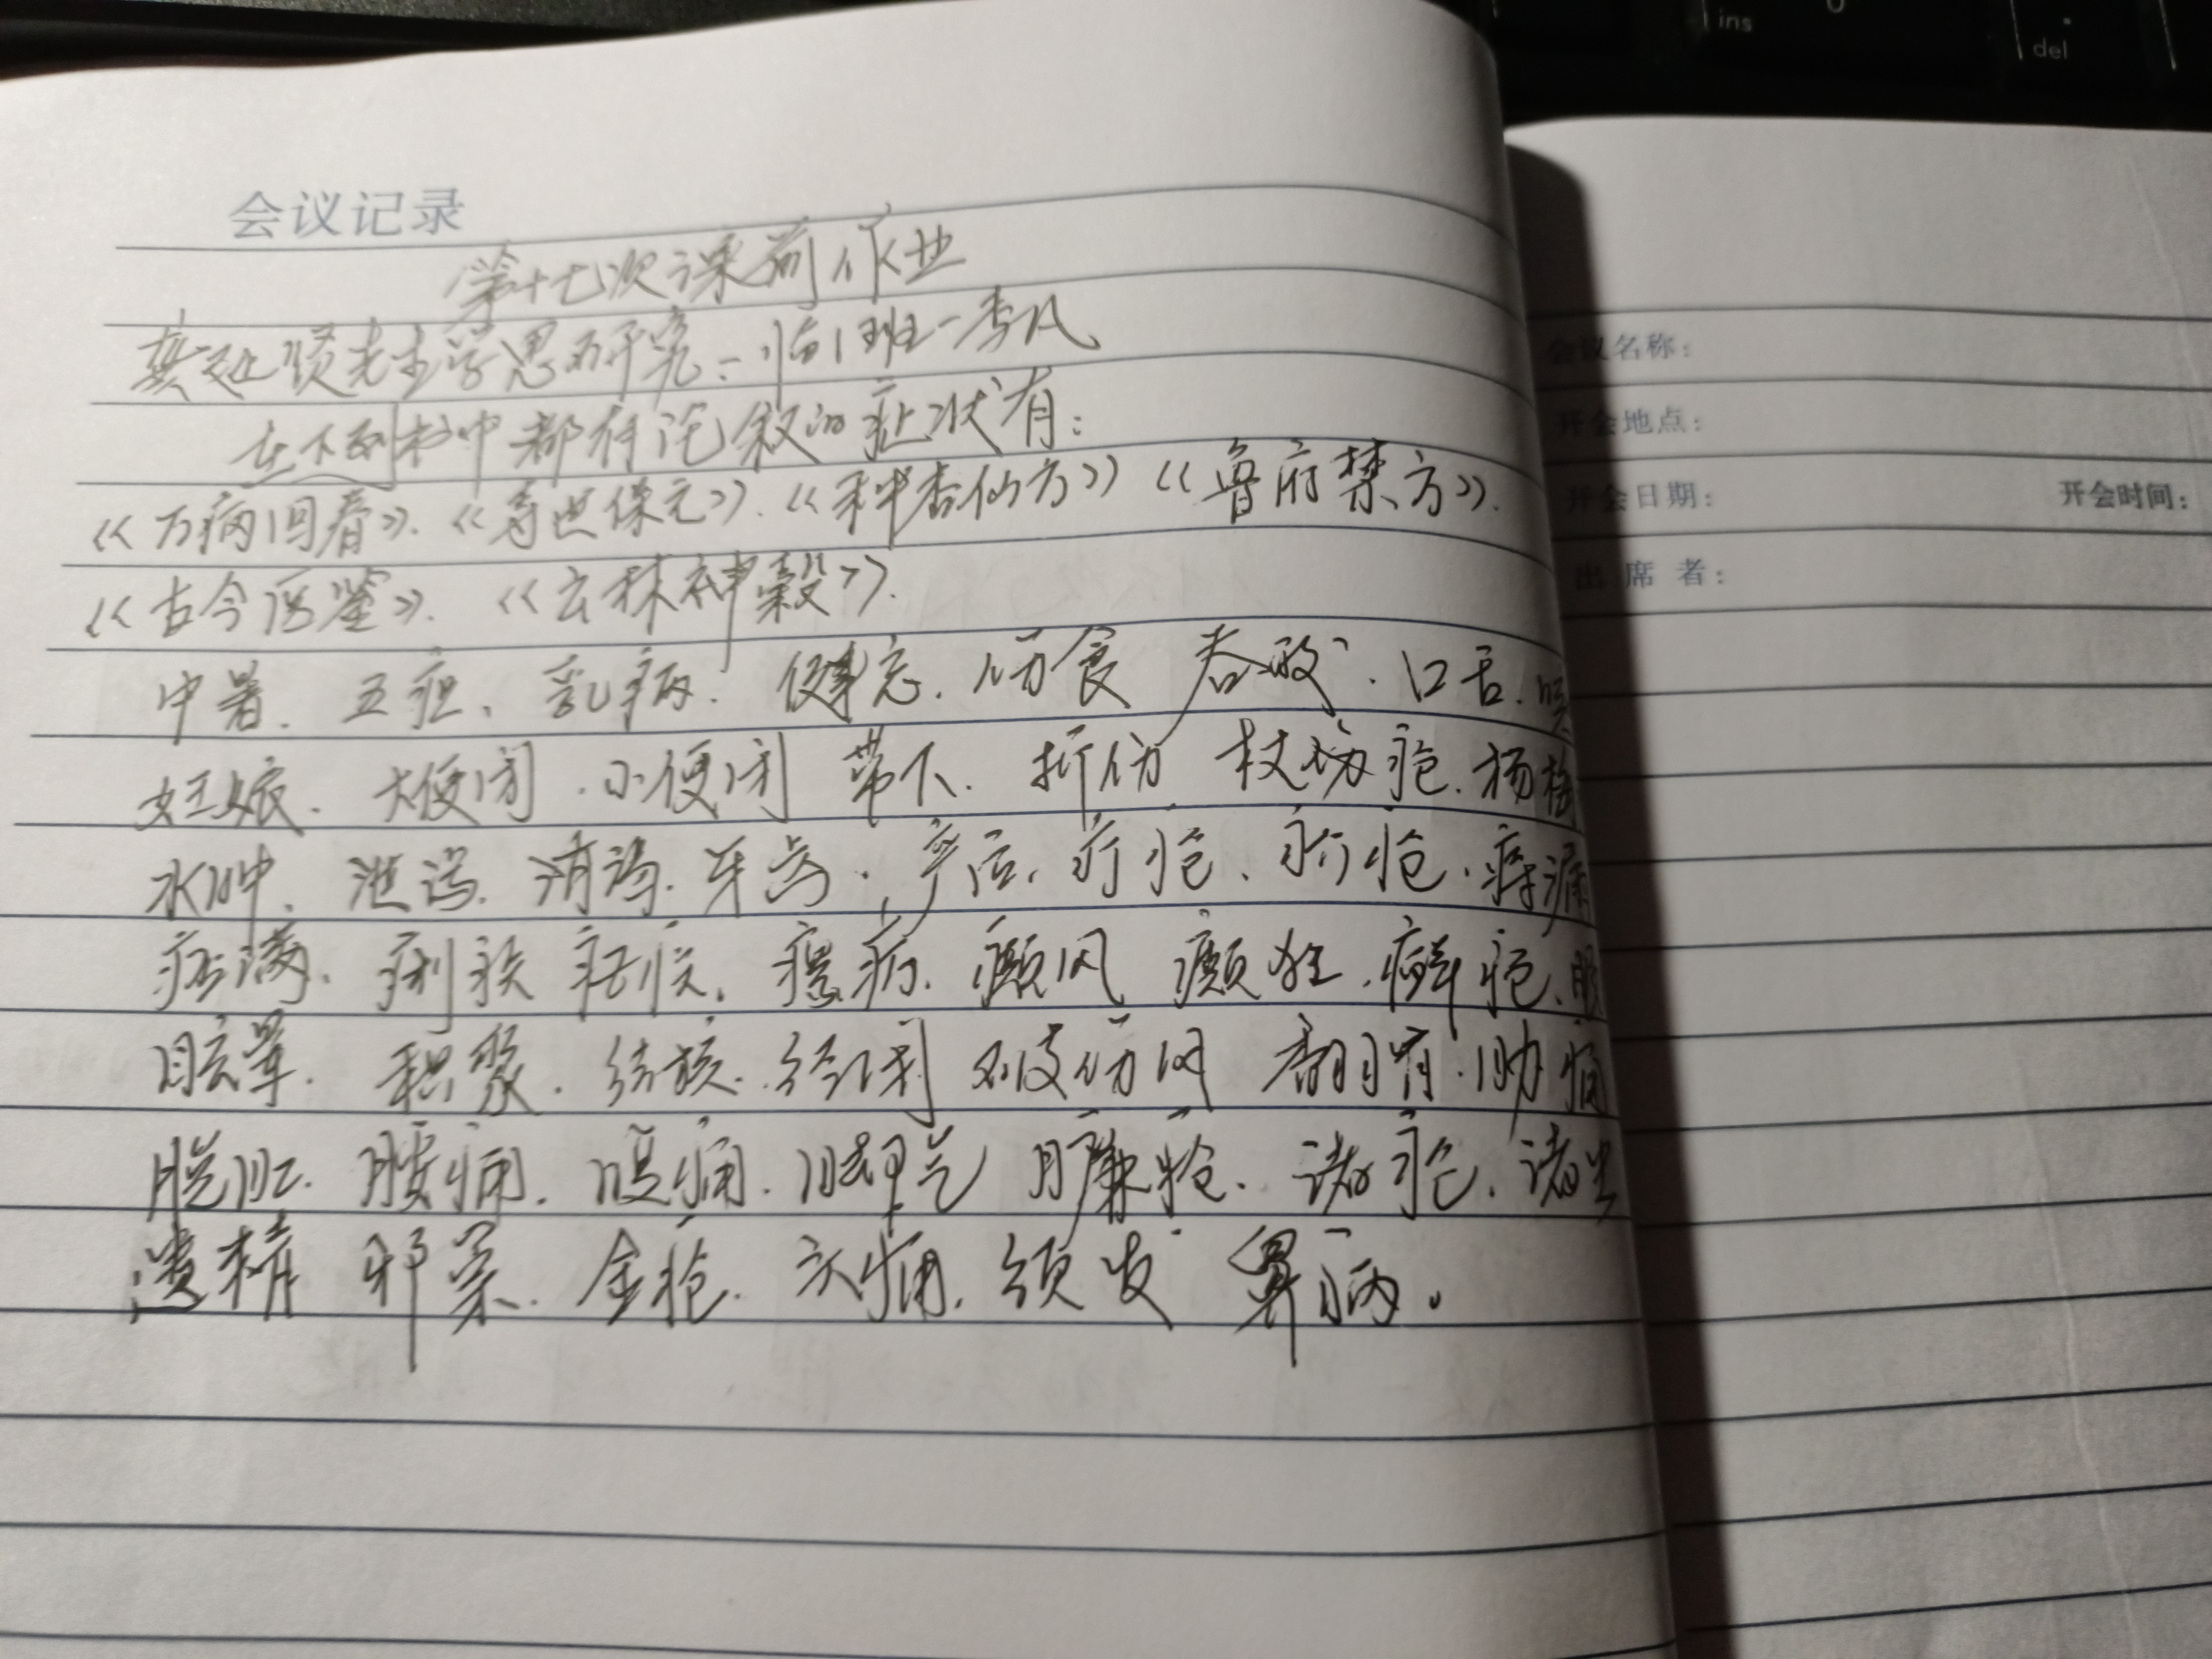 会议记录
第十七次课前作业
龚廷贤先生学思研究:一临1班一季凡
在下列书中都有论叙的症状有:
《万病回春》.《寿世保元》.《种杏仙方》《鲁府禁方》.
《古今医鉴》.《云林神彀》.
中暑.五疸、乳病.健忘.伤食 吞酸.口舌.
妊娠.大便闭.小便闭 带下.折伤 杖疮.杨梅
水肿.泄泻.消渴.牙齿.产后.疔疮、疥疮.痔漏
痞满.痢疾 瘟病.癜风 癫狂.癣疮.
眩晕.积聚.结核.经闭 破伤风 翻胃.胁痛
脱肛.腰痛.腹痛.脚气 臁疮.诸疮.诸虫
遗精 邪祟.金疮.头痛.须发 鼻病.
会议名称:
开会地点:
开会日期: 开会时间:
出席者:
ins
del